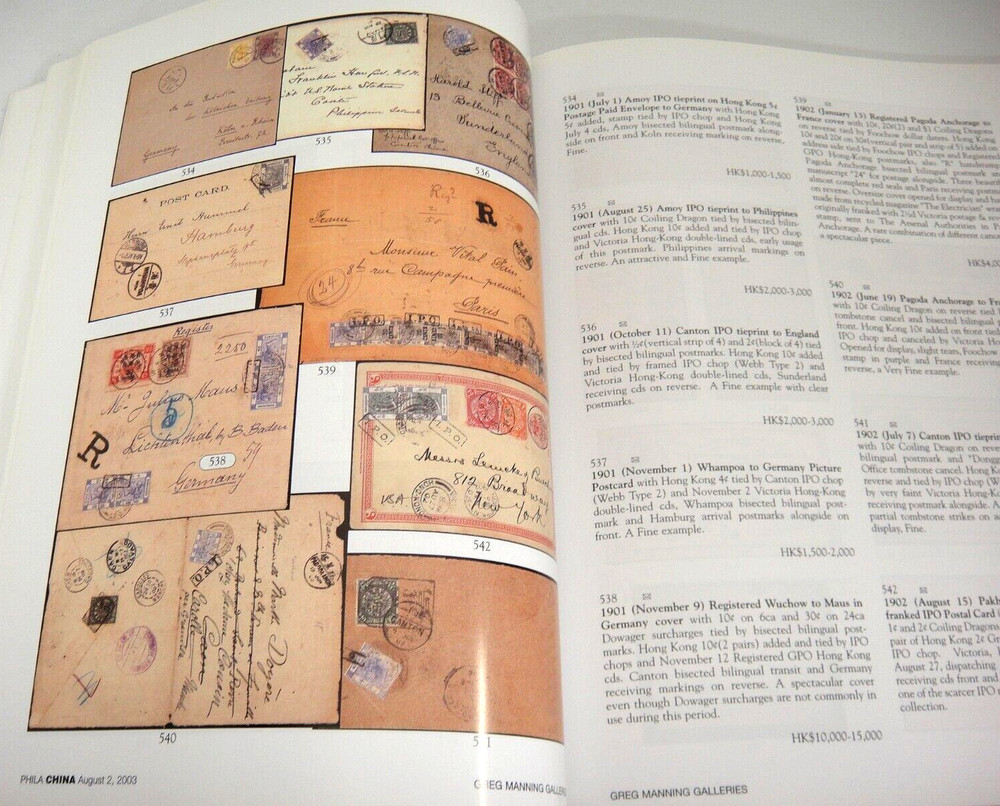 534
535
536
POST CARD.
Herrn
Hamburg
Germany
537
France
R
Monsieur Vital
Paris
24
I.P.O.
I.P.O.
539
Register
2250
Lichtenthal, by B. Baden
R
538
Germany
Harold
15 Bellevue
Sunderland
England
Philippine Islands
Germany
I.P.O.
I.P.O.
Messrs
812 Broadway
New York
USA
542
France
I.P.O.
CANTON
540
PHILA CHINA August 2, 2003
GREG MANNING GALLERIES
534
1901 (July 1) Amoy IPO tieprint on Hong Kong 5¢
Postage Paid Envelope to Germany with Hong Kong
5¢ added, stamp tied by IPO chop and Hong Kong
July 4 cds, Amoy bisected bilingual postmark along-
side on front and Koln receiving marking on reverse,
Fine.
HK$1,000-1,500
535
1901 (August 25) Amoy IPO tieprint to Philippines
cover with 10¢ Coiling Dragon tied by bisected bilin-
gual cds. Hong Kong 10¢ added and tied by IPO chop
and Victoria Hong-Kong double-lined cds, early usage
of this postmark. Philippines arrival markings on
reverse. An attractive and Fine example.
HK$2,000-3,000
536
1901 (October 11) Canton IPO tieprint to England
cover with ½¢(vertical strip of 4) and 2¢(block of 4) tied
by bisected bilingual postmarks. Hong Kong 10¢ added
and tied by framed IPO chop (Webb Type 2) and
Victoria Hong-Kong double-lined cds, Sunderland
receiving cds on reverse. A Fine example with clear
postmarks.
HK$2,000-3,000
537
1901 (November 1) Whampoa to Germany Picture
Postcard with Hong Kong 4¢ tied by Canton IPO chop
(Webb Type 2) and November 2 Victoria Hong-Kong
double-lined cds, Whampoa bisected bilingual post-
mark and Hamburg arrival postmarks alongside on
front. A Fine example.
HK$1,500-2,000
538
1901 (November 9) Registered Wuchow to Maus in
Germany cover with 10¢ on 6ca and 30¢ on 24ca
Dowager surcharges tied by bisected bilingual post-
marks. Hong Kong 10¢(2 pairs) added and tied by IPO
chops and November 12 Registered GPO Hong Kong
cds. Canton bisected bilingual transit and Germany
receiving markings on reverse. A spectacular cover
even though Dowager surcharges are not commonly in
use during this period.
HK$10,000-15,000
539
1902 (January 13) Registered Pagoda Anchorage to
France cover with 10¢, 20¢(2) and $1 Coiling Dragons
on reverse tied by Foochow dollar
GPO Hong-Kong postmarks, also "R"
Pagoda Anchorage bisected bilingual
manuscript "24" foot postage alongside. These
almost complete red seals and Paris receiving
on reverse.
made from recycled magazine "The Electrician"
originally franked with
stamp, sent to The Arsenal Authorities in
Anchorage. A rare combination of different
a spectacular piece.
HK$4,0
540
1902 (June 19) Pagoda Anchorage to Fr
with 10¢ Coiling Dragon on reverse tied
tombstone cancel and bisected bilingual
front. Hong Kong 10¢ added on front tied
IPO chop and canceled by Victoria Ho
Opened for display, slight tears, Foochow
stamp in purple and France receiving
reverse, a Very Fine example.
541
1902 (July 7) Canton IPO tieprin
with 10¢ Coiling Dragon on reverse
bilingual postmark and "Dongg
Office tombstone cancel. Hong K
reverse and tied by IPO chop (W
by very faint Victoria Hong-K
receiving postmark alongside. A
partial tombstone strikes on
display, Fine.
542
1902 (August 15) Pakh
franked IPO Postal Card
1¢ and 2¢ Coiling Dragons
pair of Hong Kong 2¢ G
IPO chop. Victoria,
August 27, dispatching
receiving cds front and
one of the scarcer IPO
collection.
GREG MANNING GALLERIES